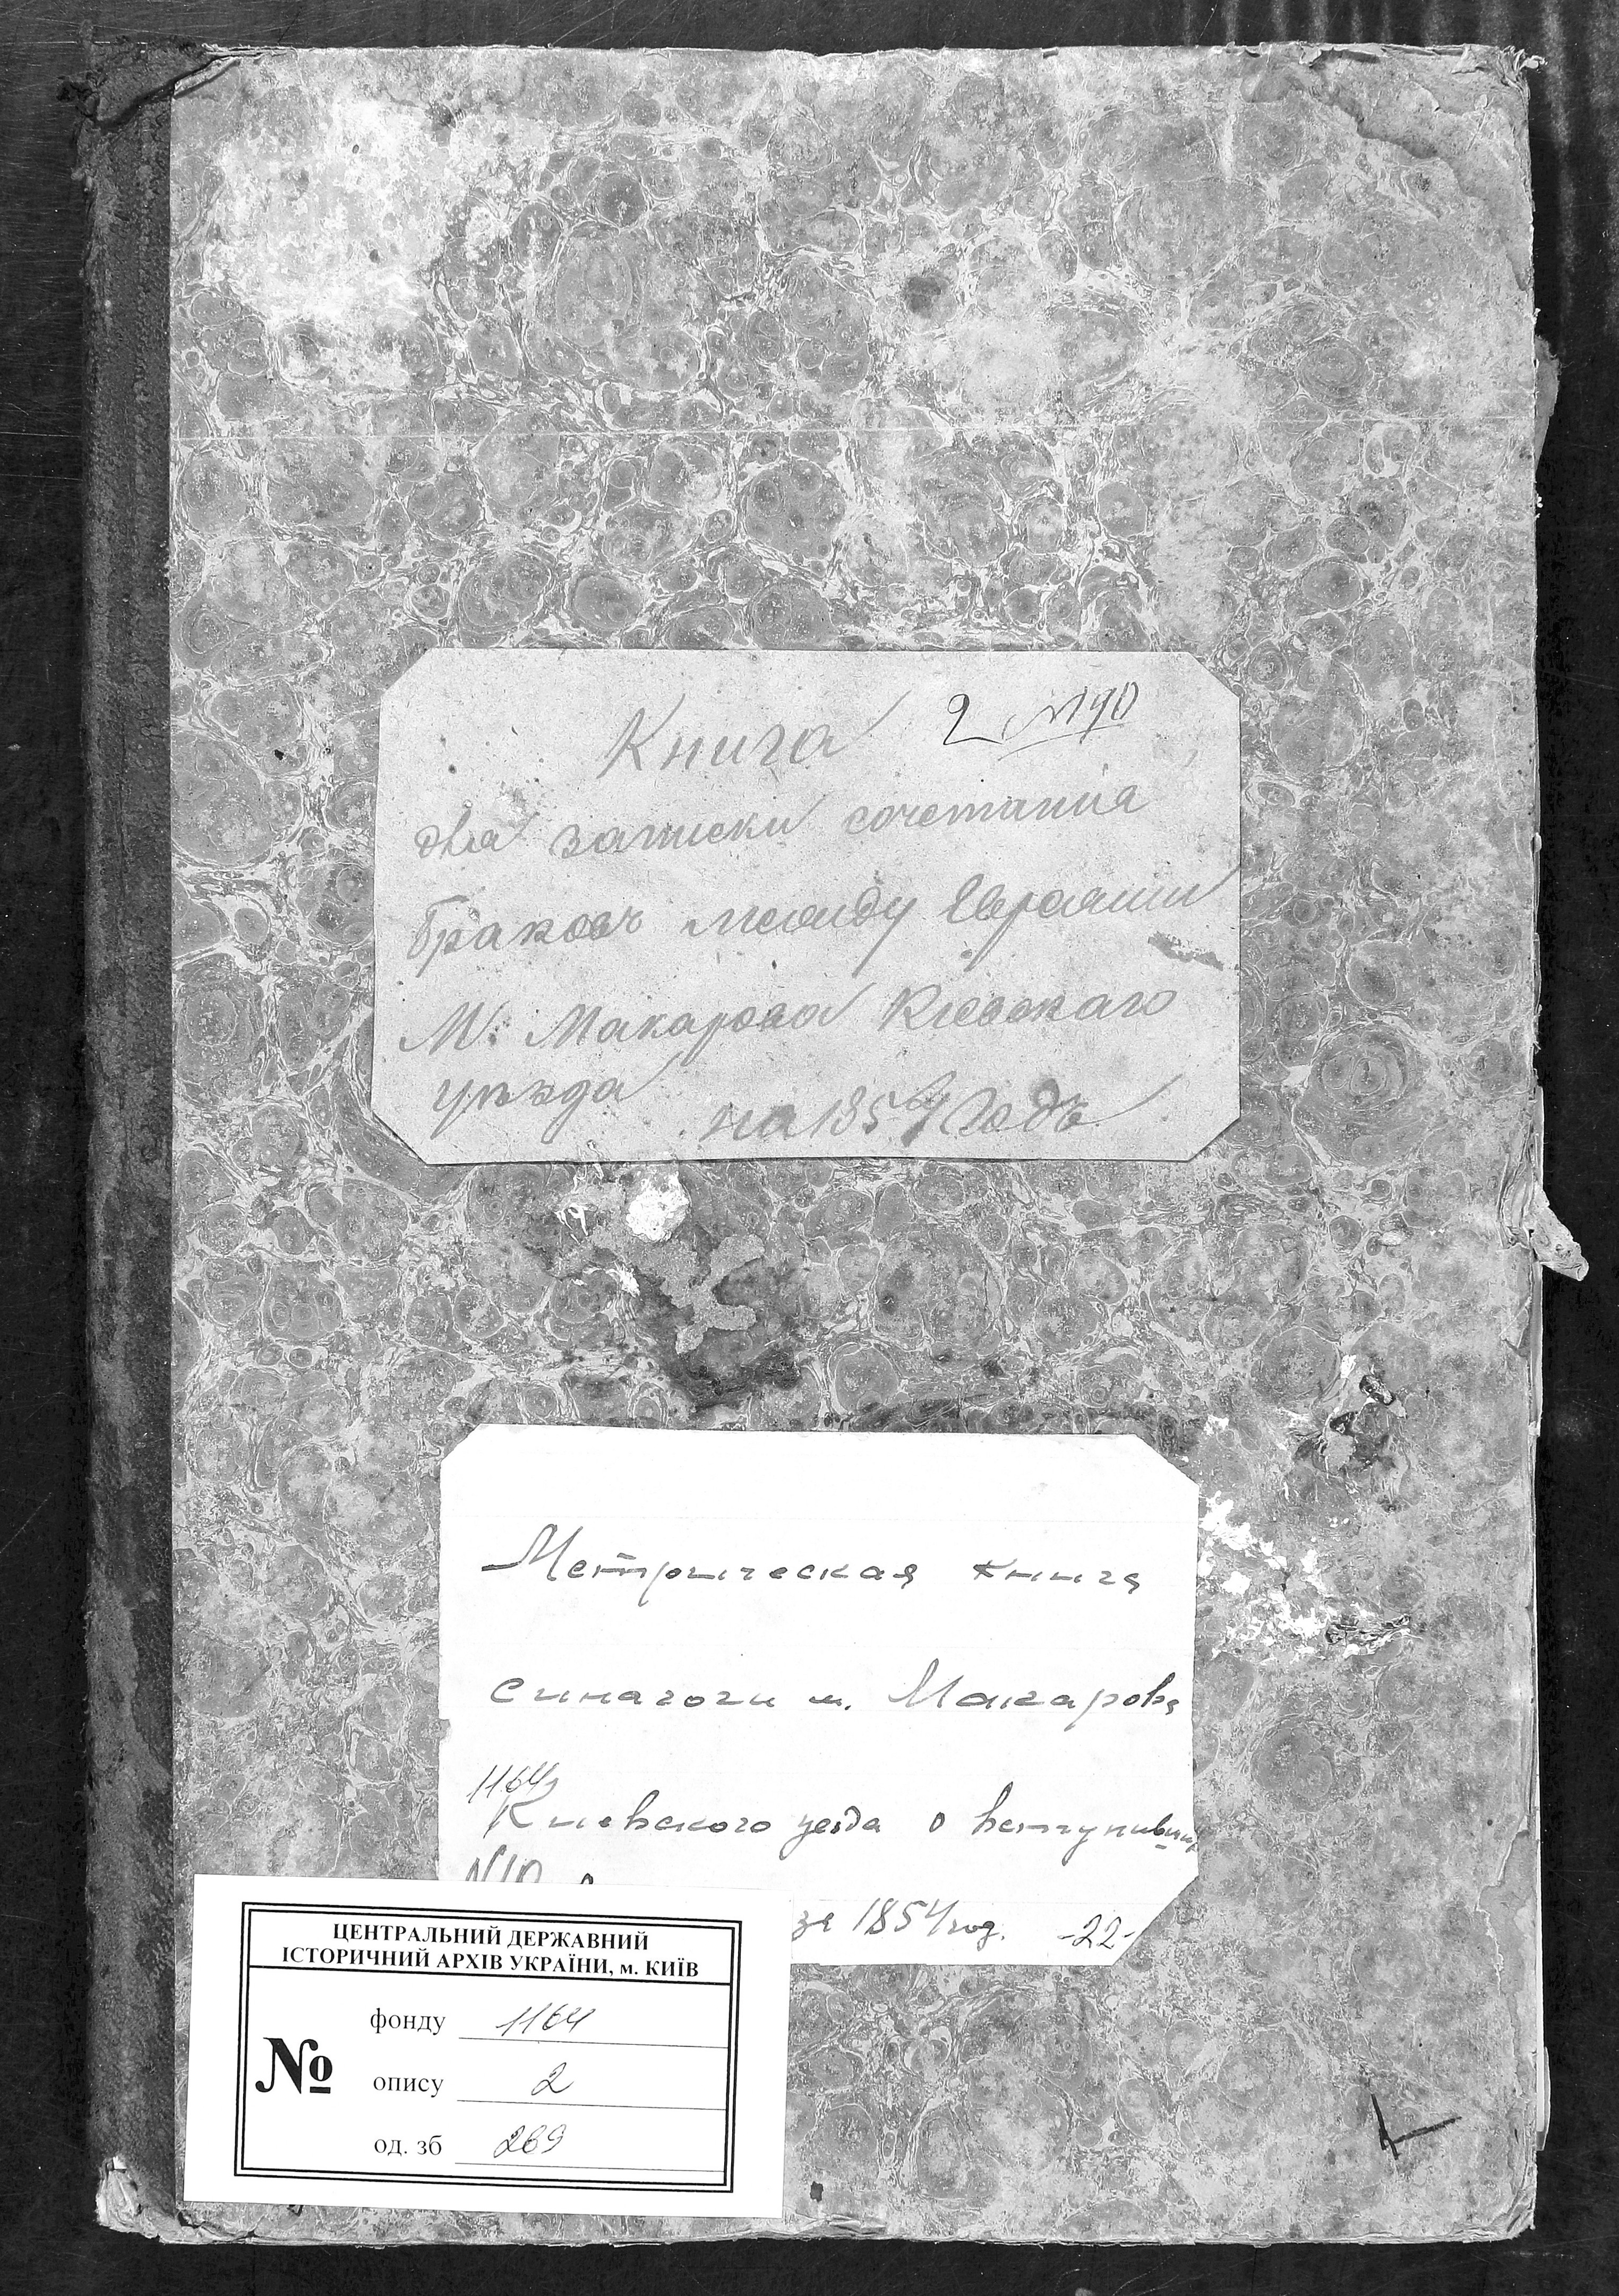 Книга 2 №
для записки сочетанія
браковъ между Евреями
М. Макарова Кіевскаго
уѣзда на 1854 Годъ
Метрическая книга
синагоги м. Макарова
1164
Киевского уезда о вступивших
за 1854 год. -22-
ЦЕНТРАЛЬНИЙ ДЕРЖАВНИЙ
ІСТОРИЧНИЙ АРХІВ УКРАЇНИ, м. КИЇВ
фонду 1164
№ опису 2
од. зб 269